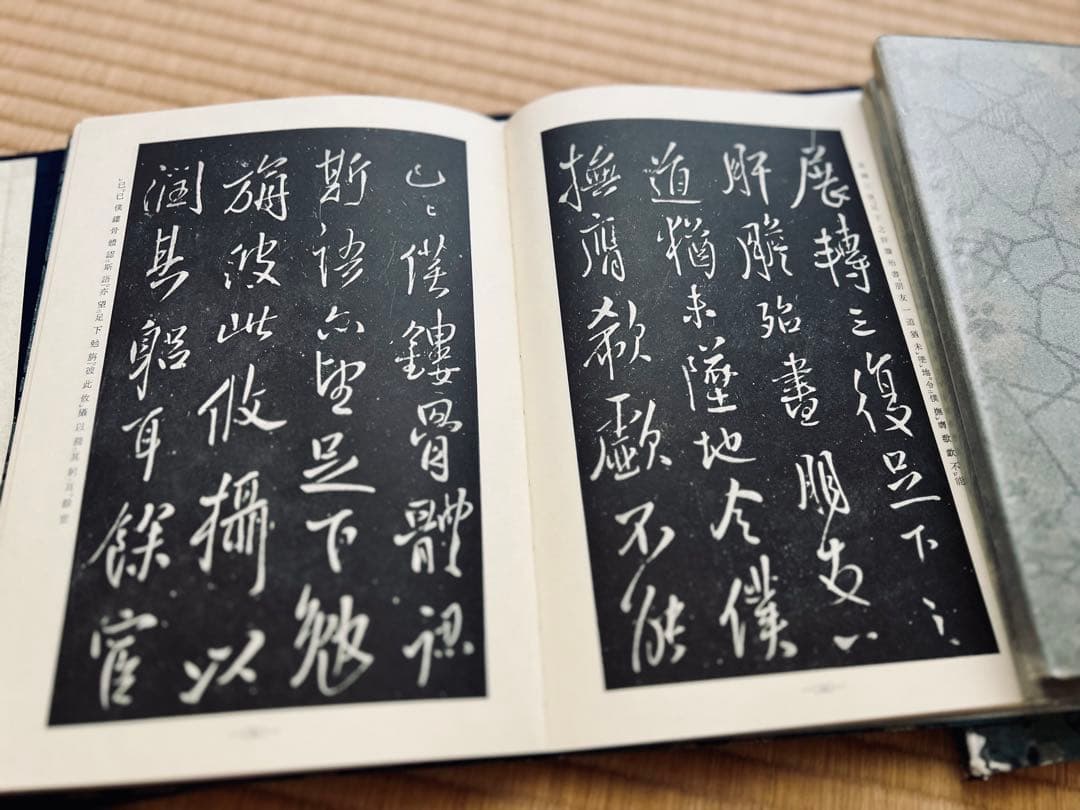 展轉三復足下之
肝膽貽書朋友一
道猶未墜地今僕
撫膺欷歔不能
之肝膽貽書。朋友一道猶未墜地。今僕撫膺欷歔不能
已〻僕鏤骨體認
斯語亦望足下勉
旃彼此攸攝以
潤其躬耳餘官
已已僕鏤骨體認斯語亦望足下勉旃彼此攸攝以潤其躬耳餘官